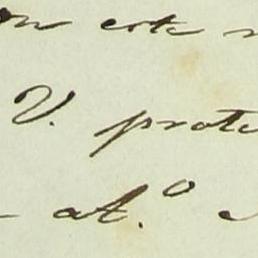 on este
V. prote
at.º